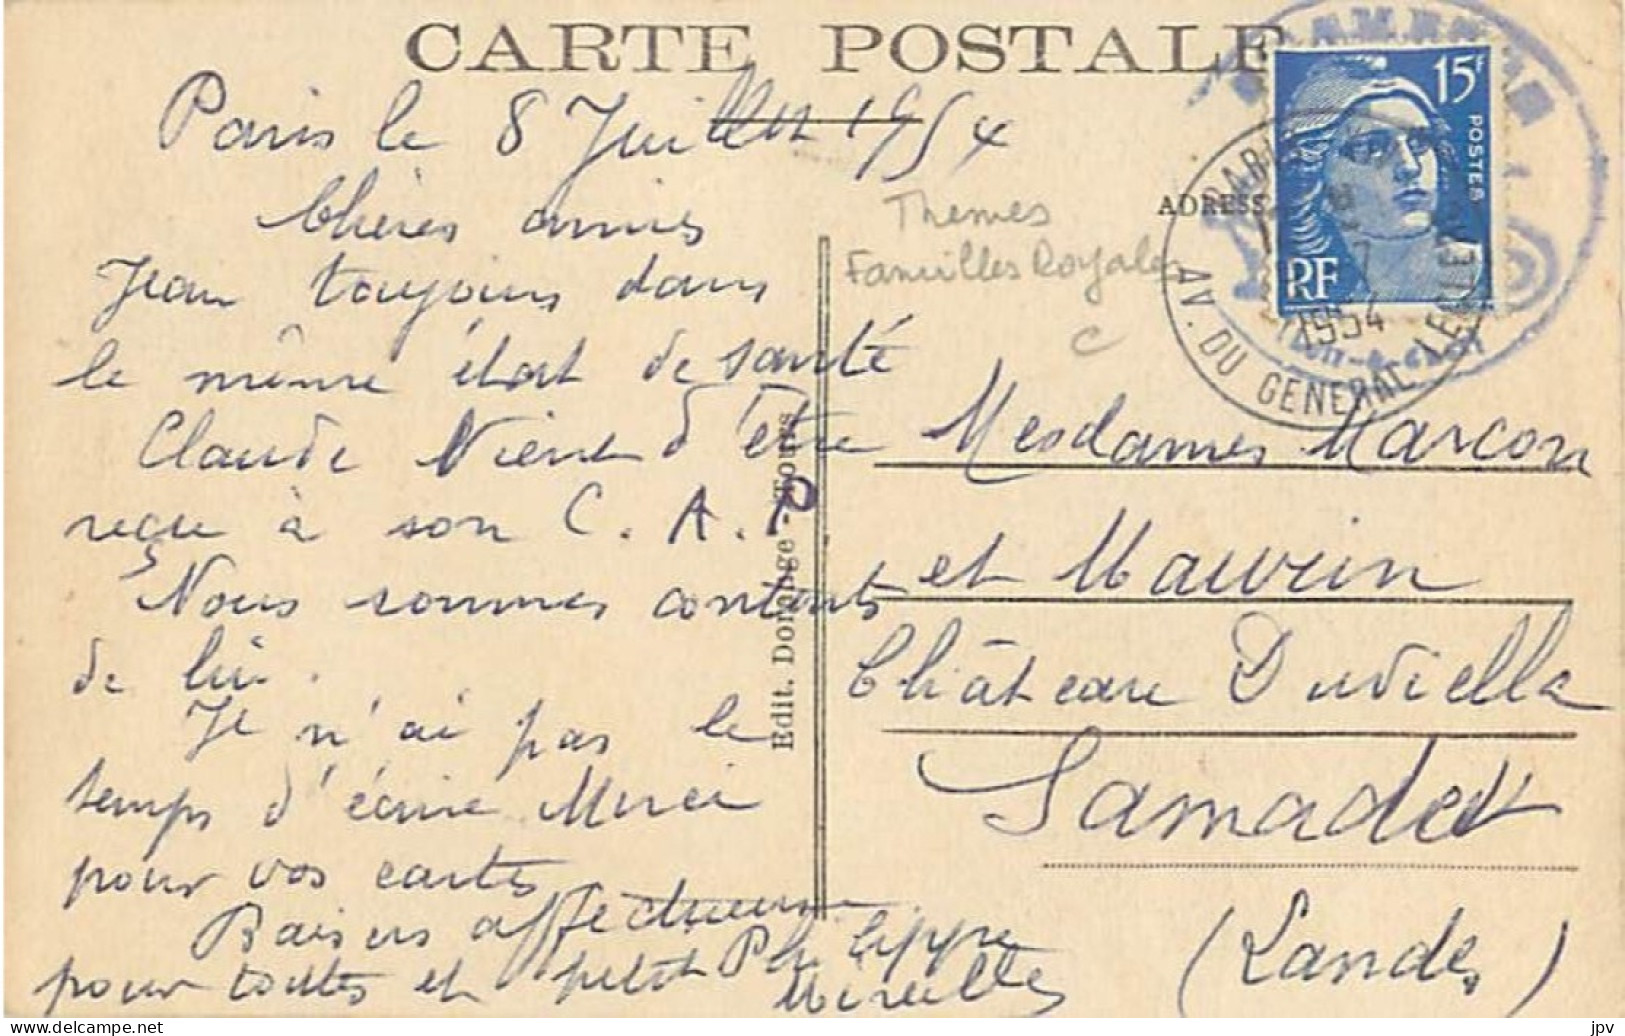 CARTE POSTALE
Paris le 8 Juillet 1954
Chères amies
Jean toujours dans
le même état de santé
Claude Vient d'être
reçu à son C.A.P
Nous sommes contents
de lui.
Je n'ai pas le
temps d'écrire Merci
pour vos cartes
Baisers affectueux
pour toutes et petit Philippe
Mireille
Edit. Dorange - Tours
Themes
Familles Royales
C
ADRESS
15F
POSTES
RF
PARI
AV. DU GENERAL LECLERC
1954
Mesdames Marcon
et Maurin
Château Duvielle
Samadet
(Landes)
delcampe.net
jpv